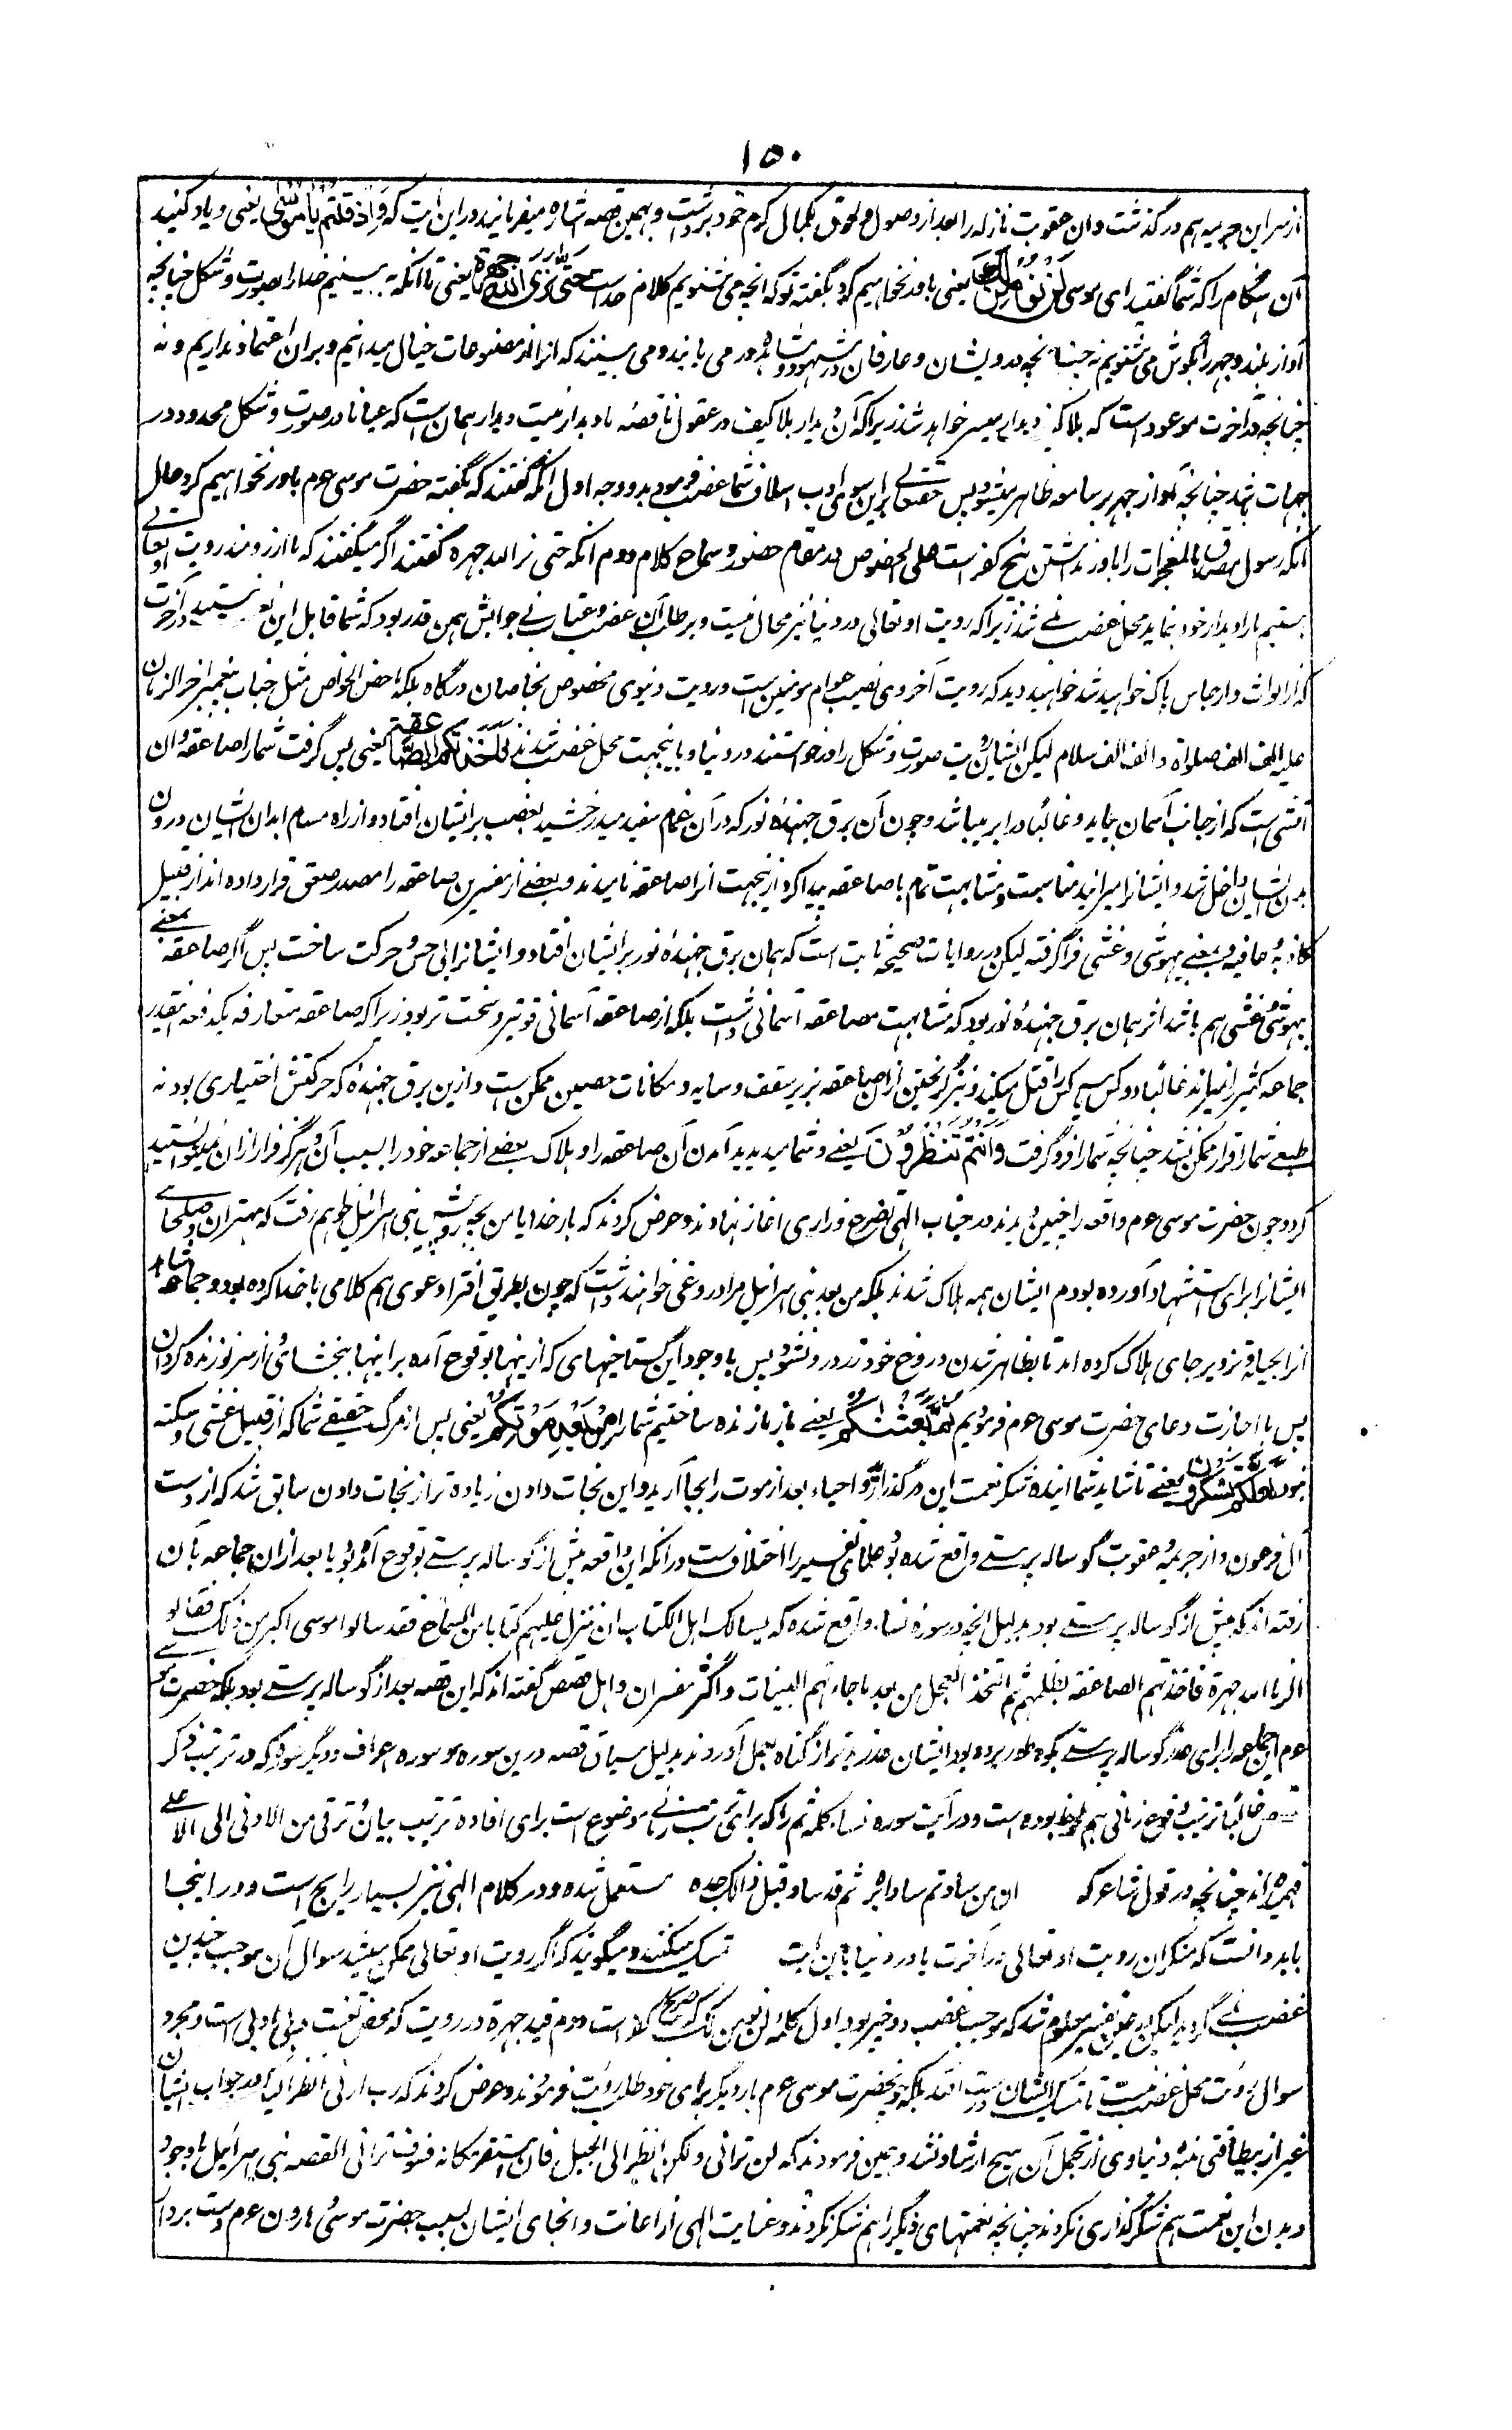 ١٥٠
از سر این جریمه هم در گذشت و آن عقوبت نازله را بعد از وصول و لحوق بکمال کرم خود برداشت و بهمین قصه اشاره میفرمایند در این آیت که وَاِذ قلتم یا موسٰی یعنی و یاد کنید
آن هنگام را که شما گفتید ای موسی لَن نُّؤمِنَ لَكَ یعنی باور نخواهیم کرد بگفته تو که انچه می شنویم کلام خداست حَتّٰی نَرَی اللهَ جَهرَةً یعنی تا آنکه به بینیم خدا را بصورت و شکل چنانچه
آواز بلند و جهر را بگوش می شنویم نه چنانچه درویشان و عارفان در شهود و مشاهده در می یابند و می بینند که آنرا از مصنوعات خیال میدانیم و بران اعتماد نداریم و نه
چنانچه در آخرت موعود است که بلا کیف دیدار میسر خواهد شد زیرا که آن دیدار بلا کیف در عقول ناقصه ما دیدار نیست دیدار همان است که عیانا در صورت و شکل محدود در
جهات بهند چنانچه آواز جهر بر سامعه ظاهر میشود پس حقتعالی براین سوی ادب اسلاف شما غضب فرمود بدو وجه اول آنکه گفتند که بگفته حضرت موسی عم باور نخواهیم کرد حال
انکه رسول مصدق بالمعجزات را باور نداشتن بیخ کفر است علی الخصوص در مقام حضور و سماع کلام دوم انکه حتی نر الله جهرة گفتند اگر میگفتند که ما ارزومند رویت اوتعالی
هستیم ما را دیدار خود بنماید محل غضب نمی شد زیرا که رویت او تعالی در دنیا نیز محال نیست و بر طلب آن غضب و عتاب نی جوابش همین قدر بود که شما قابل این نیستید در آخرت
که از الواث و ارجاس پاک خواهید شد خواهید دید که رویت آخروی نصیب عوام مومنین است و رویت دنیوی مخصوص بخاصان درگاه بلکه اخص الخواص مثل جناب پیغمبر آخر الزمان
علیه الف الف صلواة و الف الف سلام لیکن ایشان رویت صورت و شکل را درخواستند در دنیا و باینجهت محل غضب شدند فَاَخَذَتکُمُ الصّٰعِقَةُ یعنی پس گرفت شما را صاعقه و آن
آتشی است که از جانب آسمان بیاید و غالبا در ابر میباشد و چون آن برق جهنده نور که در آن غمام سفید میدرخشید بغضب بر ایشان افتاد و از راه مسام ابدان ایشان درون
بدن ایشان داخل شد و ایشانرا میرانید مناسبت و مشابهت تام با صاعقه پیدا کرد ازینجهت انرا صاعقه نامیدند و بعضی از مفسرین صاعقه را مصدر صعق قرار داده اند از قبیل
کاذبه و عافیه و بمعنی بیهوشی و غشی فرا گرفته لیکن در روایات صحیحه ثابت است که همان برق جهنده نور بر ایشان افتاد و ایشانرا بی حس و حرکت ساخت پس اگر صاعقه بمعنی
بیهوشی و غشی هم باشد اثر همان برق جهنده نور بود که مشابهت بصاعقه آسمانی داشت بلکه از صاعقه آسمانی قوی تر و سخت تر بود زیرا که صاعقه متعارفه یکدفعه اینقدر
جماعه کثیر را نمیراند غالبا دو کس یا یک کس را قتل میکند و نیز گریختن از آن صاعقه بزیر سقف و سایه و مکانات حصین ممکن است و ازین برق جهنده که حرکتش اختیاری بود نه
طبعی شما را فرار ممکن نشد چنانچه شما را فرو گرفت وَاَنتُم تَنظُرُونَ یعنی و شما میدیدید آمدن آن صاعقه را و هلاک بعضی از جماعه خود را بسبب آن و هرگز فرار از ان نمیتوانستید
کرد و چون حضرت موسی عم واقعه را چنین دیدند در جناب الهی تضرع و زاری آغاز نهادند و عرض کردند که بار خدایا من بچه روش پیش بنی اسرائیل خواهم رفت که بهتران و صلحای
ایشانرا برای استشهاد آورده بودم ایشان همه هلاک شدند بلکه من بعد بنی اسرائیل مرا دروغی خواهند داشت که چون بطریق افترا دعوی هم کلامی با خدا کرده بود و جماعه شاهد
انرا بحیله و تزویر جای هلاک کرده امد تا بظاهر شدن دروغ خود در رو نشود پس با وجود این گستاخیهای که ازینها بوقوع آمده بر اینها ببخشای و از سر نو زنده گردان
پس با اجازت دعای حضرت موسی عم فرمودیم ثُمَّ بَعَثنٰکُم یعنی باز باز زنده ساختیم شما را مِن بَعدِ مَوتِکُم یعنی پس از مرگ حقیقی شما که از قبیل غشی و سکته
نبود لَعَلَّکُم تَشکُرُونَ یعنی تا شاید شما آینده شکر نعمت این درگذر و احیاء بعد از موت را بجا آرید و این نجات دادن زیاده تر از نجات دادن سابق شد که از دست
آل فرعون و از جریمه و عقوبت گوساله پرستی واقع شده بود علمای تفسیر را اختلاف است در آنکه این واقعه پیش از گوساله پرستی بوقوع آمده بود یا بعد ازان جماعه بآن
رفته اند که پیش از گوساله پرستی بود بدلیل انچه در سوره نساء واقع شده که یسالک اهل الکتاب ان تنزل علیهم کتابا من السماء فقد سالوا موسی اکبر من ذلک فقالوا
ارنا الله جهرة فاخذتهم الصاعقه بظلمهم ثم اتخذوا العجل من بعد ما جاءتهم البینات و اکثر مفسران و اهل قصص گفته اند که این قصه بعد از گوساله پرستی بود بلکه حضرت موسی
عم این جماعه را برای عذر گوساله پرستی بکوه طور برده بود ایشان عذر بدتر از گناه بعمل آوردند بدلیل سیاق قصه درین سوره و سوره اعراف و دیگر سور که در ترتیب ذکر
قصص غالبا ترتیب وقوع زمانی هم ملحوظ بوده است و در آیت سوره نساء کلمه ثم را که برای ترتیب زمانی موضوع است برای افاده ترتیب بیان و ترقی من الادنی الی الاعلی
فهمیده اند چنانچه در قول شاعر که ان من ساد ثم ساد ابوه ثم قد ساد قبل ذالک جده مستعمل شده و در کلام الهی نیز بسیار رایج است و در اینجا
باید دانست که منکران رویت او تعالی در آخرت یا در دنیا باین آیت تمسک میکنند و میگویند که اگر رویت او تعالی ممکن میشد سوال آن موجب چندین
غضب نمی گردید لیکن در ضمن تفسیر معلوم شد که موجب غضب دو چیز بود اول کلمه لن نومن لک که صریح کفر است و دوم قید جهرة در رویت که محض تعنت و بی ادبی است و مجرد
سوال رویت محل غضب نیست تا تمسک ایشان درست افتد بلکه چون حضرت موسی عم بار دیگر برای خود طلب رویت فرمودند و عرض کردند که رب ارنی انظر الیک در جواب ایشان
غیر از بیطاقتی بنیه دنیاوی از تحمل آن هیچ ارشاد نشد و همین فرمودند که لن ترانی ولکن انظر الی الجبل فان استقر مکانه فسوف ترانی القصه بنی اسرائیل با وجود
دیدن این نعمت هم شکر گذاری نکردند چنانچه نعمتهای دیگر را هم شکر نکردند و عنایت الهی از اعانت و انجای ایشان بسبب حضرت موسی و هارون عم دست بردار